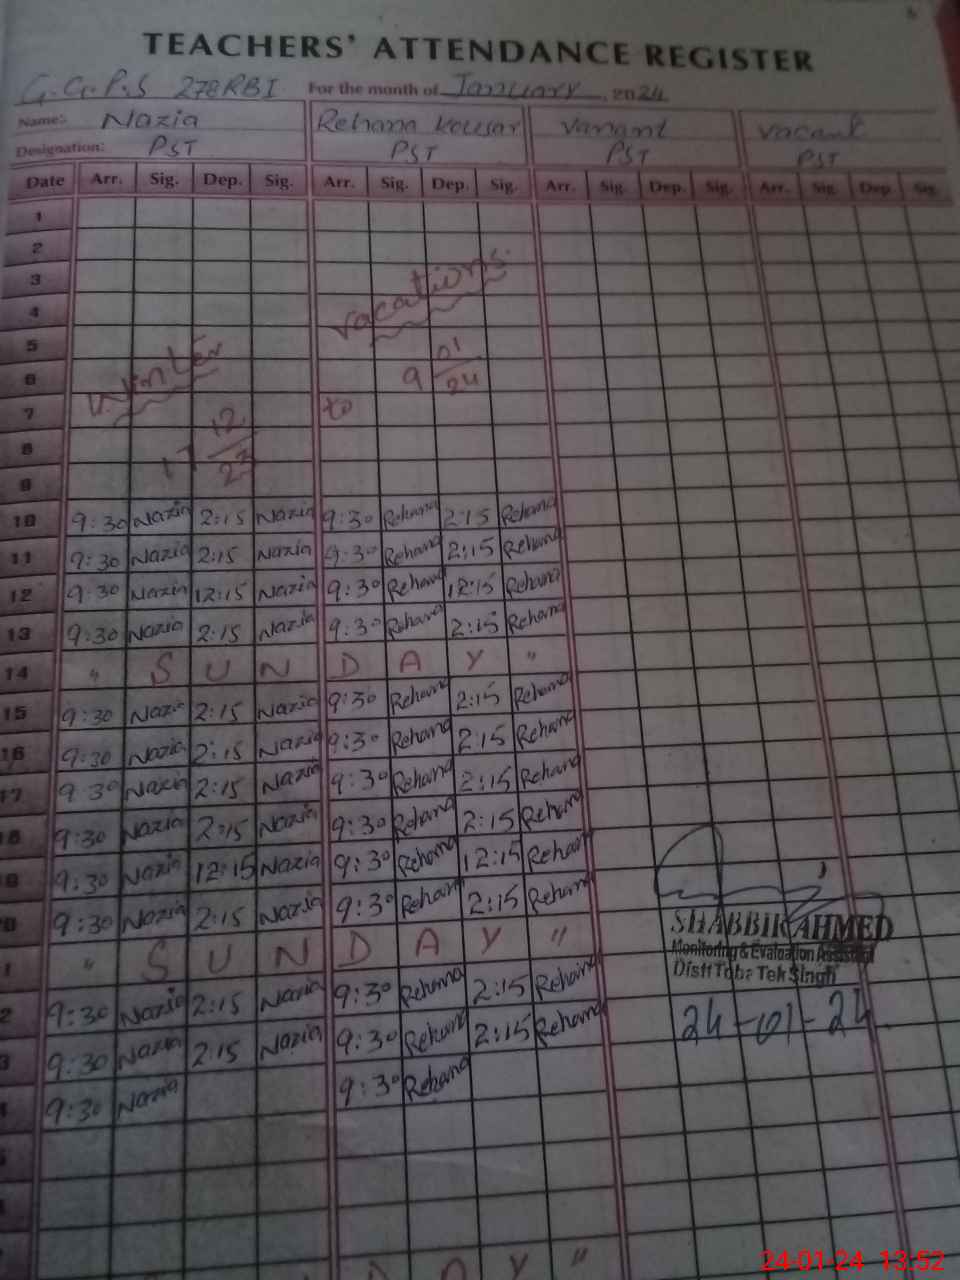 TEACHERS' ATTENDANCE REGISTER
G.G.P.S 278RBI For the month of January, 2024
Name: Nazia Rehana Kousar Vanant vacant
Designation: PST PST PST PST
Date Arr. Sig. Dep. Sig. Arr. Sig. Dep. Sig. Arr. Sig. Dep. Sig. Arr. Sig. Dep. Sig.
1
2
3
4
5
6
7
8
9
Winter vacations
17 12/23 to 9 01/24
10 9:30 Nazia 2:15 Nazia 9:30 Rehana 2:15 Rehana
11 9:30 Nazia 2:15 Nazia 9:30 Rehana 2:15 Rehana
12 9:30 Nazia 12:15 Nazia 9:30 Rehana 12:15 Rehana
13 9:30 Nazia 2:15 Nazia 9:30 Rehana 2:15 Rehana
14 " S U N D A Y "
15 9:30 Nazia 2:15 Nazia 9:30 Rehana 2:15 Rehana
16 9:30 Nazia 2:15 Nazia 9:30 Rehana 2:15 Rehana
17 9:30 Nazia 2:15 Nazia 9:30 Rehana 2:15 Rehana
18 9:30 Nazia 2:15 Nazia 9:30 Rehana 2:15 Rehana
9 9:30 Nazia 12:15 Nazia 9:30 Rehana 12:15 Rehana
0 9:30 Nazia 2:15 Nazia 9:30 Rehana 2:15 Rehana
1 " S U N D A Y "
2 9:30 Nazia 2:15 Nazia 9:30 Rehana 2:15 Rehana
3 9:30 Nazia 2:15 Nazia 9:30 Rehana 2:15 Rehana
9:30 Nazia 9:30 Rehana
SHABBIR AHMED
Monitoring & Evaluation Assistant
Distt Toba Tek Singh
24-01-24
D A Y "
24-01-24 13:52